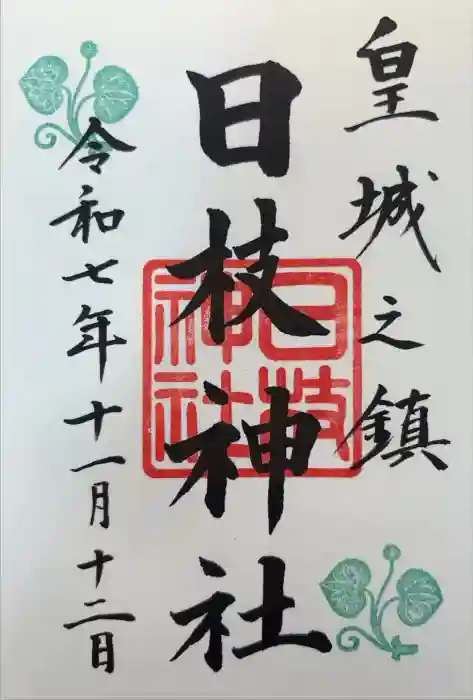 皇城之鎮
日枝神社
日枝
神社
令和七年十一月十二日